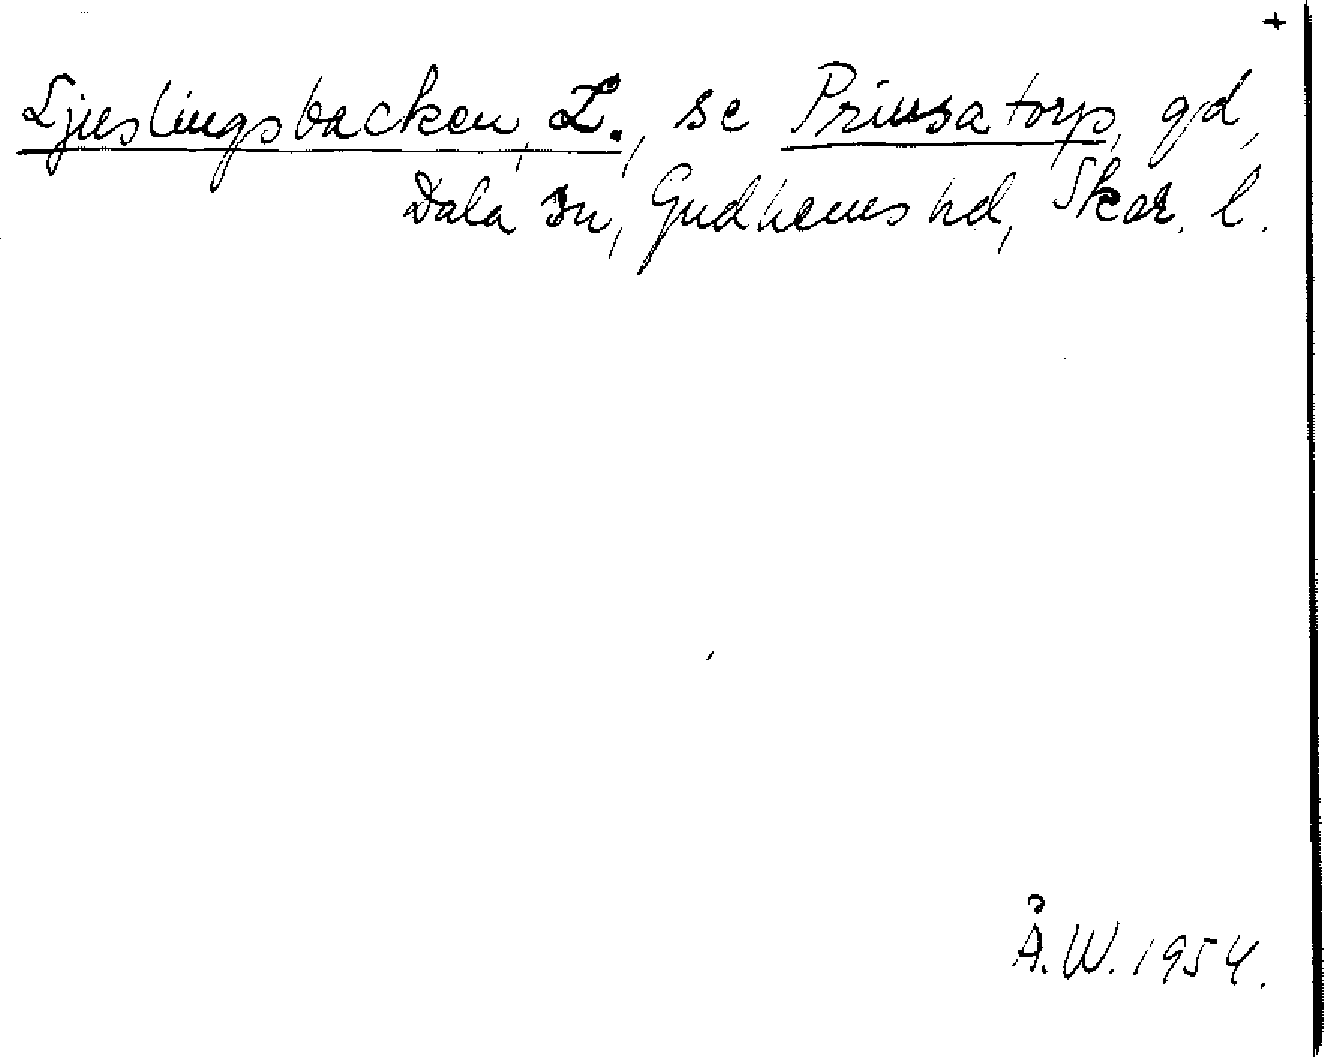 +
Ljuslingsbacken, L., se Prinsatorp, gd,
Dala sn, Gudhems hd, Skar. l.
Å.W. 1954.